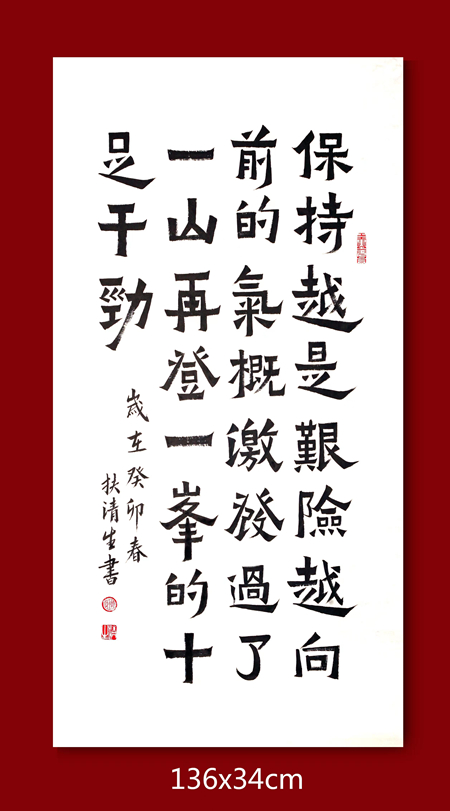 保持越是艱險越向
前的氣概激發過了
一山再登一峯的十
足干勁
歲在癸卯春
扶清生書
136x34cm